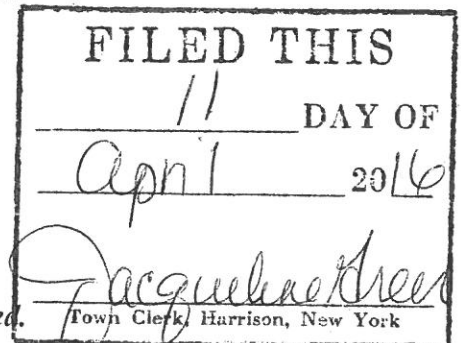 FILED THIS
11 DAY OF
April 2016
Jacqueline Greer
ed. Town Clerk, Harrison, New York